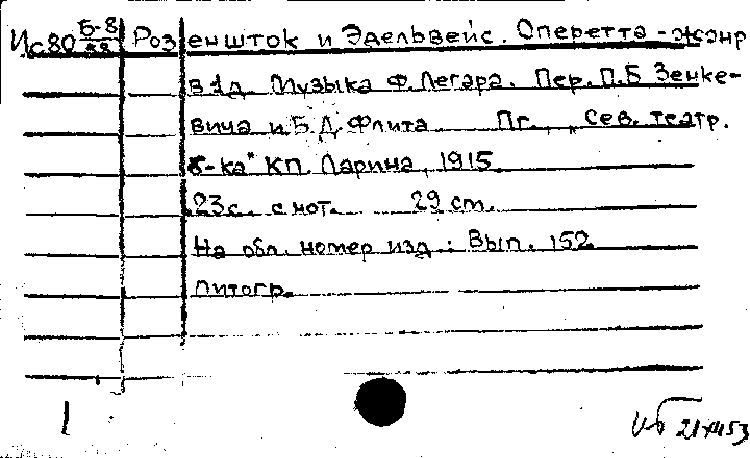 Ис80 Б-8/88 Розеншток и Эдельвейс. Оперетта-жанр
в 1д. Музыка Ф. Легара. Пер. П.Б Зенке-
вича и Б.Д. Флита Пг., „Сев. театр.
б-ка" КП. Ларина, 1915
23с. с нот. 29 см.
На обл. номер изд: Вып. 152
Литогр.
1